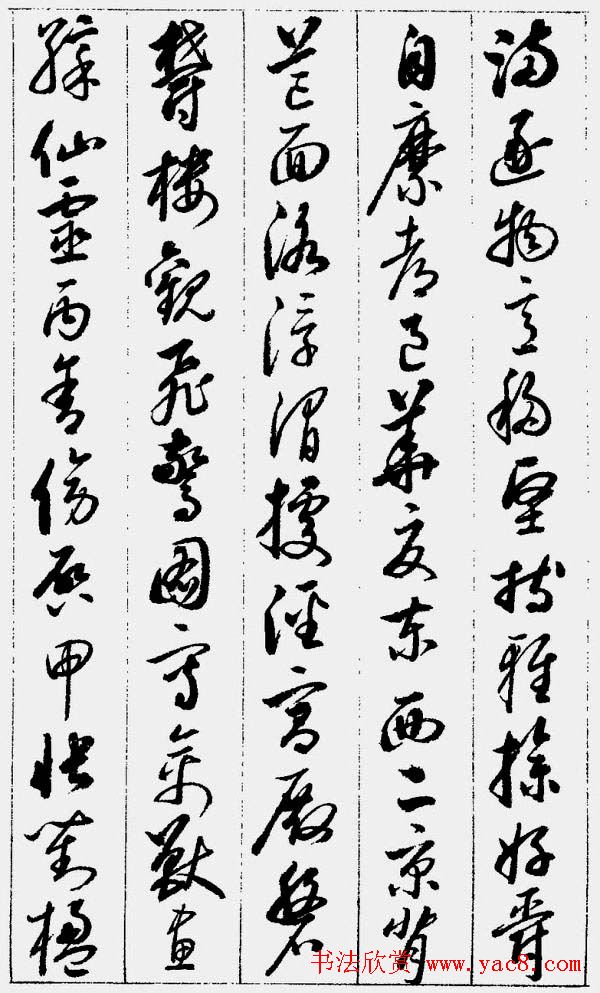 满逐物意移坚持雅操好爵
自縻都邑华夏东西二京背
芒面洛浮渭据泾宫殿盘
郁楼观飞惊图写禽兽画
彩仙灵丙舍傍启甲帐对楹
书法欣赏 www.yac8.com